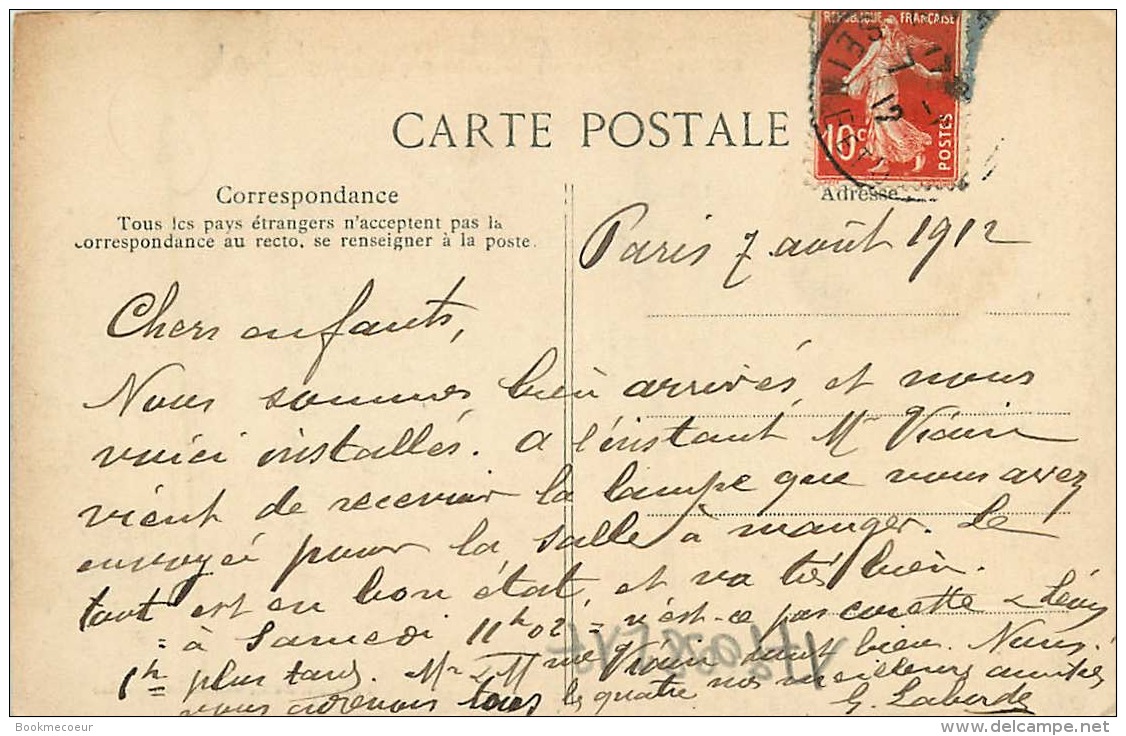 CARTE POSTALE
REPUBLIQUE FRANÇAISE
10c POSTES
Correspondance
Tous les pays étrangers n'acceptent pas la
correspondance au recto, se renseigner à la poste.
Adresse
Paris 7 août 1912
Chers enfants,
Nous sommes bien arrivés, et nous
voici installés. A l'instant Mr Viain
vient de recevoir la lampe que vous avez
envoyée pour la salle à manger. Le
tout est en bon état, et va très bien.
= à Samedi 11h02 = n'est-ce pas cocotte &
1h plus tard. Mr & Mme Viain vont bien. Nous
vous envoyons tous les quatre nos meilleures amitiés
G. Laborde
Bookmecoeur
www.delcampe.net